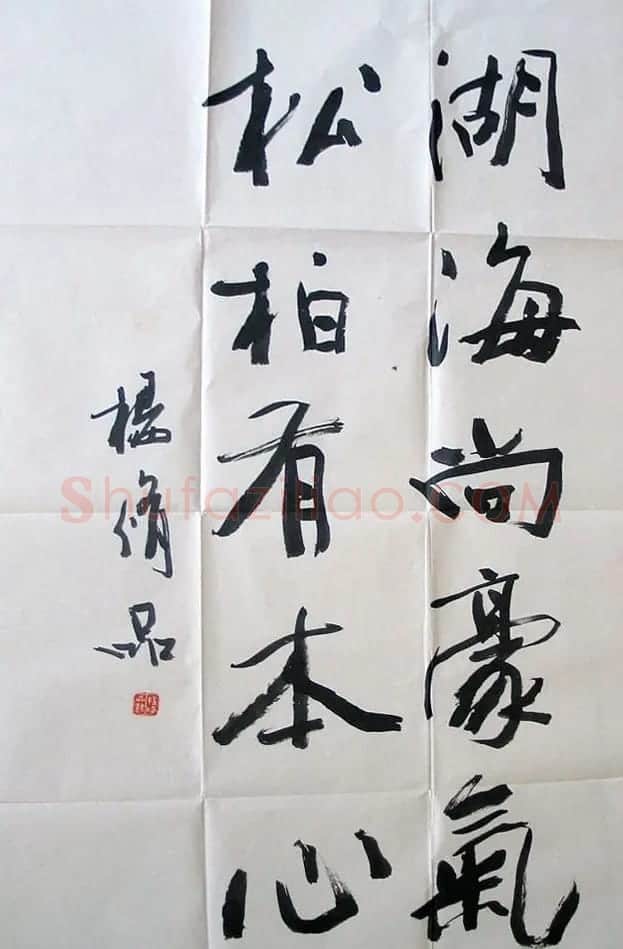 湖海尚豪氣
松柏有本心
楊脩品
Shufaziliao.COM